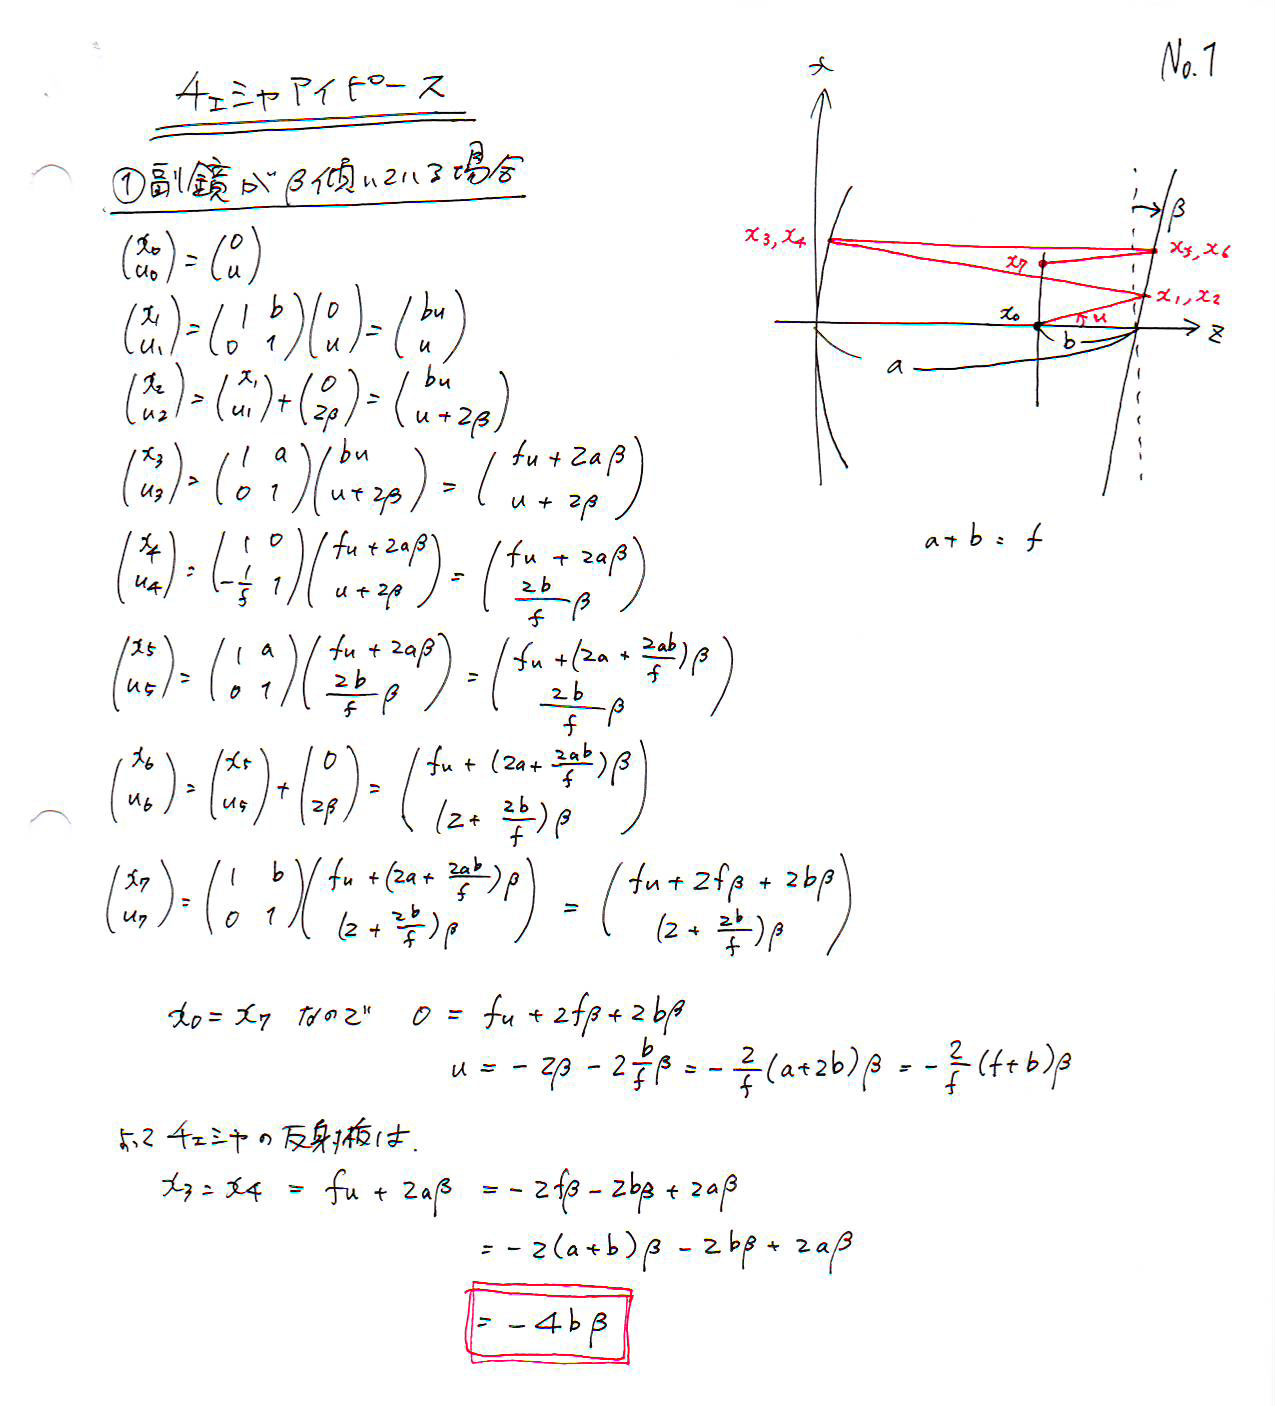 No.1
チェシャアイピース
①副鏡がβ傾いている場合
(x0 u0) = (0 u)
(x1 u1) = (1 b 0 1)(0 u) = (bu u)
(x2 u2) = (x1 u1) + (0 2β) = (bu u+2β)
(x3 u3) = (1 a 0 1)(bu u+2β) = (fu+2aβ u+2β)
(x4 u4) = (1 0 -1/f 1)(fu+2aβ u+2β) = (fu+2aβ 2b/f β)
(x5 u5) = (1 a 0 1)(fu+2aβ 2b/f β) = (fu+(2a+2ab/f)β 2b/f β)
(x6 u6) = (x5 u5) + (0 2β) = (fu+(2a+2ab/f)β (2+2b/f)β)
(x7 u7) = (1 b 0 1)(fu+(2a+2ab/f)β (2+2b/f)β) = (fu+2fβ+2bβ (2+2b/f)β)
x0=x7 なので 0 = fu+2fβ+2bβ
u = -2β-2b/fβ = -2/f(a+2b)β = -2/f(f+b)β
よってチェシャの反射板は.
x3=x4 = fu+2aβ = -2fβ-2bβ+2aβ
= -2(a+b)β-2bβ+2aβ
= -4bβ
x
β
x3, x4
x7
x5, x6
x0
u
x1, x2
z
b
a
a+b=f